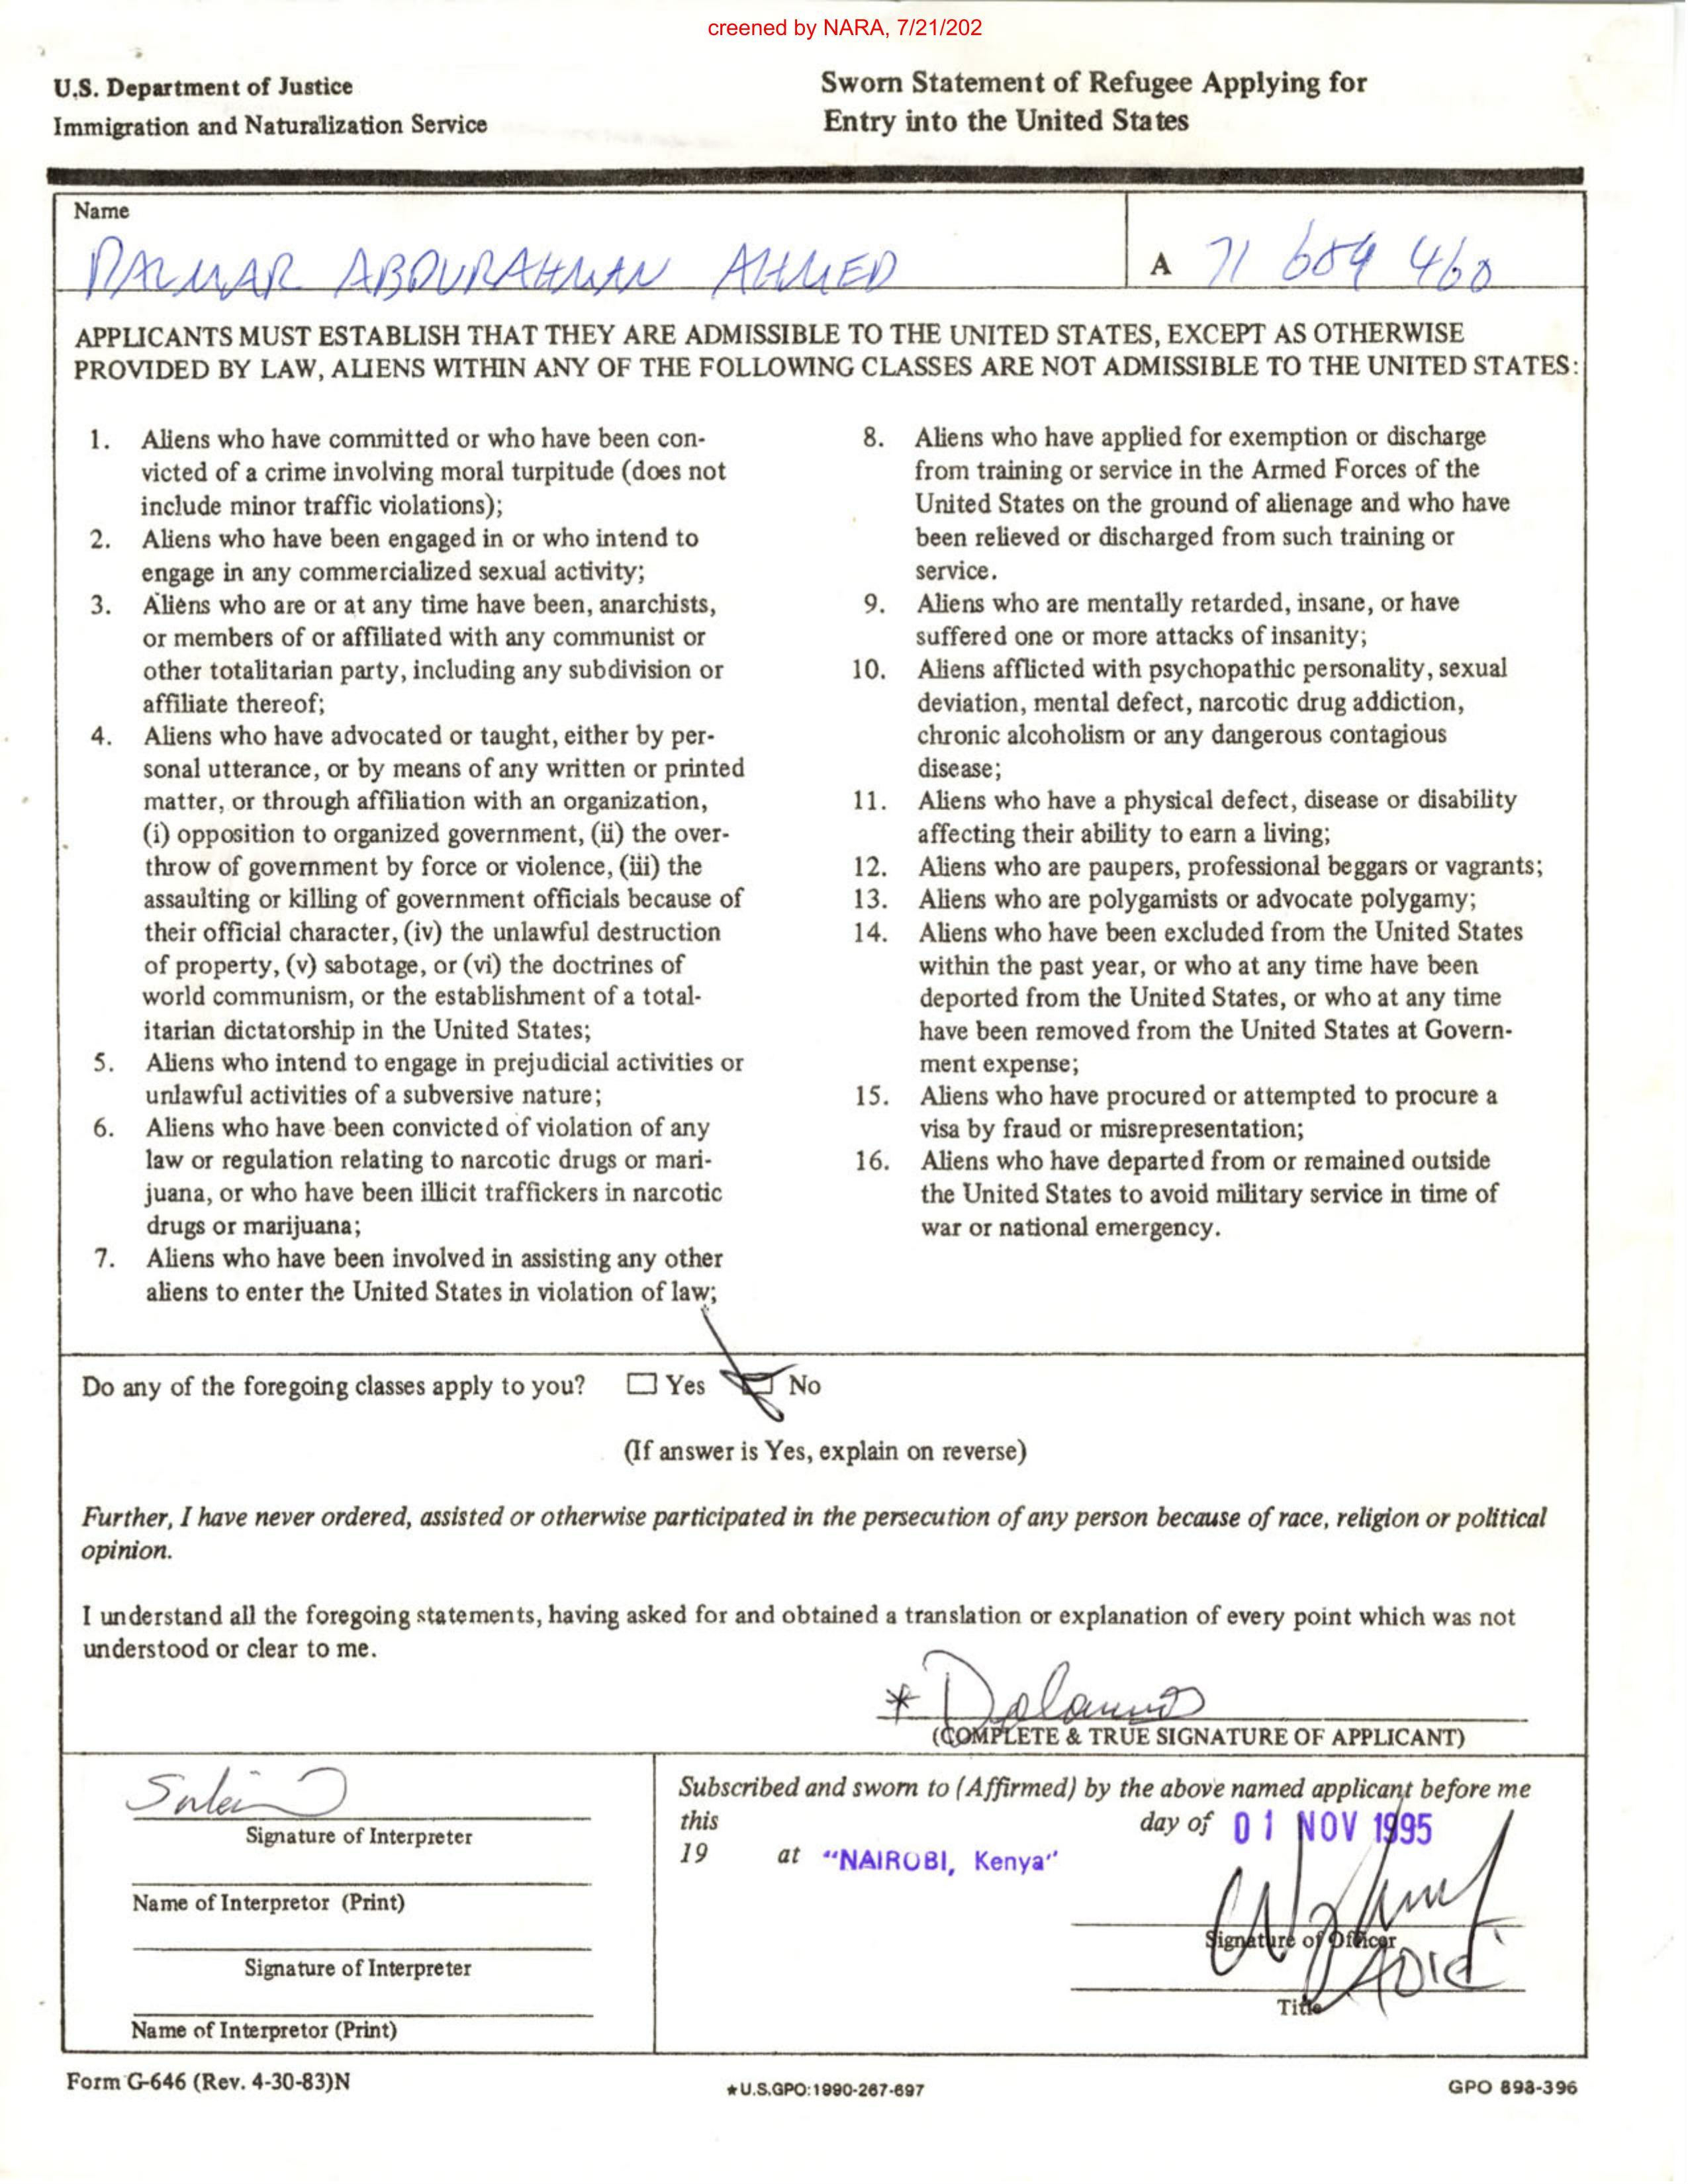 creened by NARA, 7/21/202
U.S. Department of Justice
Immigration and Naturalization Service
Sworn Statement of Refugee Applying for
Entry into the United States
Name
DALMAR ABDURAHMAN AHMED
A 71 689 460
APPLICANTS MUST ESTABLISH THAT THEY ARE ADMISSIBLE TO THE UNITED STATES, EXCEPT AS OTHERWISE
PROVIDED BY LAW, ALIENS WITHIN ANY OF THE FOLLOWING CLASSES ARE NOT ADMISSIBLE TO THE UNITED STATES:
1. Aliens who have committed or who have been con-
victed of a crime involving moral turpitude (does not
include minor traffic violations);
2. Aliens who have been engaged in or who intend to
engage in any commercialized sexual activity;
3. Aliens who are or at any time have been, anarchists,
or members of or affiliated with any communist or
other totalitarian party, including any subdivision or
affiliate thereof;
4. Aliens who have advocated or taught, either by per-
sonal utterance, or by means of any written or printed
matter, or through affiliation with an organization,
(i) opposition to organized government, (ii) the over-
throw of government by force or violence, (iii) the
assaulting or killing of government officials because of
their official character, (iv) the unlawful destruction
of property, (v) sabotage, or (vi) the doctrines of
world communism, or the establishment of a total-
itarian dictatorship in the United States;
5. Aliens who intend to engage in prejudicial activities or
unlawful activities of a subversive nature;
6. Aliens who have been convicted of violation of any
law or regulation relating to narcotic drugs or mari-
juana, or who have been illicit traffickers in narcotic
drugs or marijuana;
7. Aliens who have been involved in assisting any other
aliens to enter the United States in violation of law;
8. Aliens who have applied for exemption or discharge
from training or service in the Armed Forces of the
United States on the ground of alienage and who have
been relieved or discharged from such training or
service.
9. Aliens who are mentally retarded, insane, or have
suffered one or more attacks of insanity;
10. Aliens afflicted with psychopathic personality, sexual
deviation, mental defect, narcotic drug addiction,
chronic alcoholism or any dangerous contagious
disease;
11. Aliens who have a physical defect, disease or disability
affecting their ability to earn a living;
12. Aliens who are paupers, professional beggars or vagrants;
13. Aliens who are polygamists or advocate polygamy;
14. Aliens who have been excluded from the United States
within the past year, or who at any time have been
deported from the United States, or who at any time
have been removed from the United States at Govern-
ment expense;
15. Aliens who have procured or attempted to procure a
visa by fraud or misrepresentation;
16. Aliens who have departed from or remained outside
the United States to avoid military service in time of
war or national emergency.
Do any of the foregoing classes apply to you? Yes No
(If answer is Yes, explain on reverse)
Further, I have never ordered, assisted or otherwise participated in the persecution of any person because of race, religion or political
opinion.
I understand all the foregoing statements, having asked for and obtained a translation or explanation of every point which was not
understood or clear to me.
*
(COMPLETE & TRUE SIGNATURE OF APPLICANT)
Signature of Interpreter
Name of Interpretor (Print)
Signature of Interpreter
Name of Interpretor (Print)
Subscribed and sworn to (Affirmed) by the above named applicant before me
this day of 01 NOV 1995
19 at "NAIROBI, Kenya"
Signature of Officer
Title
Form G-646 (Rev. 4-30-83)N
★U.S.GPO:1990-267-697
GPO 898-396